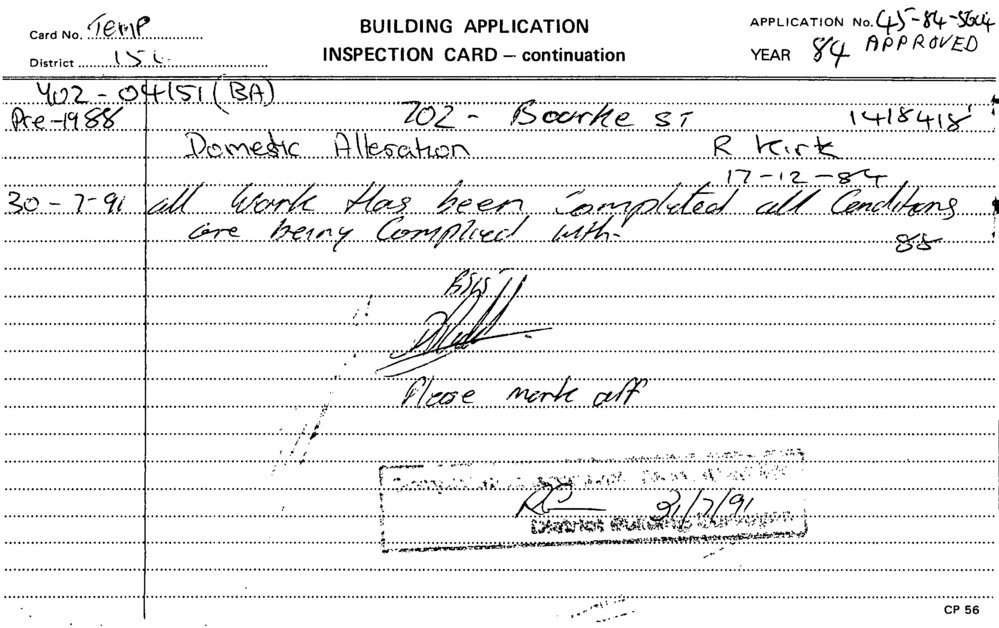 Card No. TEMP
District 15
BUILDING APPLICATION
INSPECTION CARD – continuation
APPLICATION No. 45-84-
YEAR 84 APPROVED
402-04151 (BA)
Pre-1988 702 - Bourke ST 1418418
Domestic Alteration R Kirk
17-12-84
30-7-91 all Work Has been Completed all Conditons
are being Complied with-
88
Please mark off
31/7/91
District Building Surveyor
CP 56